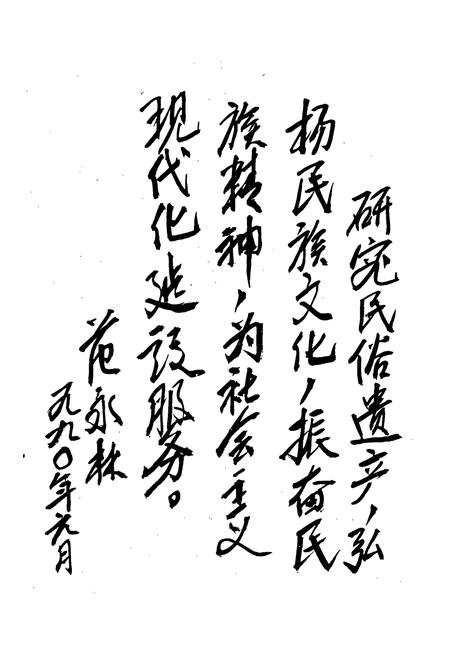 研究民俗遗产，弘
杨民族文化，振奋民
族精神，为社会主义
现代化建设服务。
范永林
一九九〇年元月